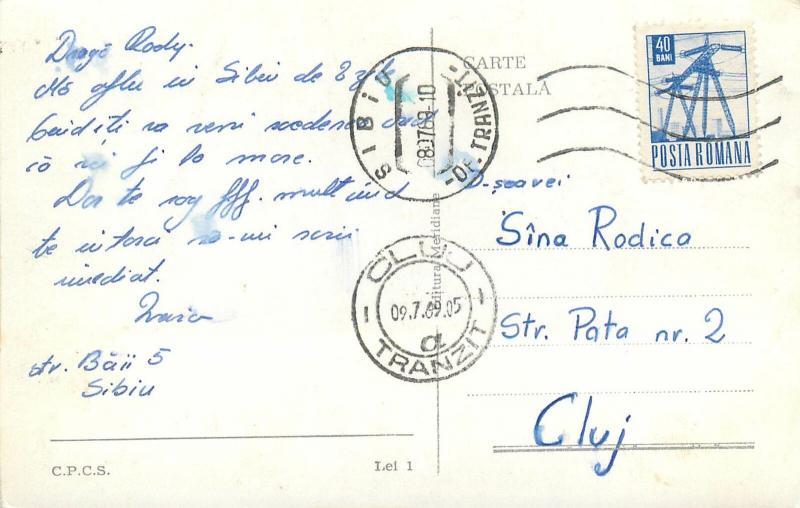 Dragă Rody.
Mă aflu în Sibiu de 2 zile
îți va veni vederea
că ai fi la mare.
Dar te rog fff. mult când
te întorci să-mi scrii
imediat.
str. Băii 5
Sibiu
C.P.C.S.
Lei 1
SIBIU
080769-10
-OF. TRANZIT-
CLUJ
09.7.69.05
α
TRANZIT
Editura Meridiane
CARTE
POSTALĂ
40
BANI
POSTA ROMANA
D-șoarei
Sîna Rodica
Str. Pata nr. 2
Cluj